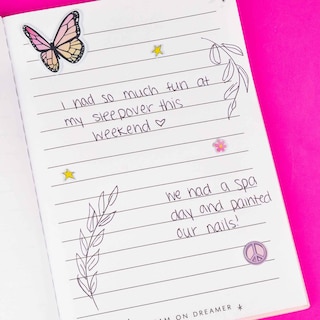 I had so much fun at
my sleepover this
weekend ♡
We had a spa
day and painted
our nails!
ON DREAMER